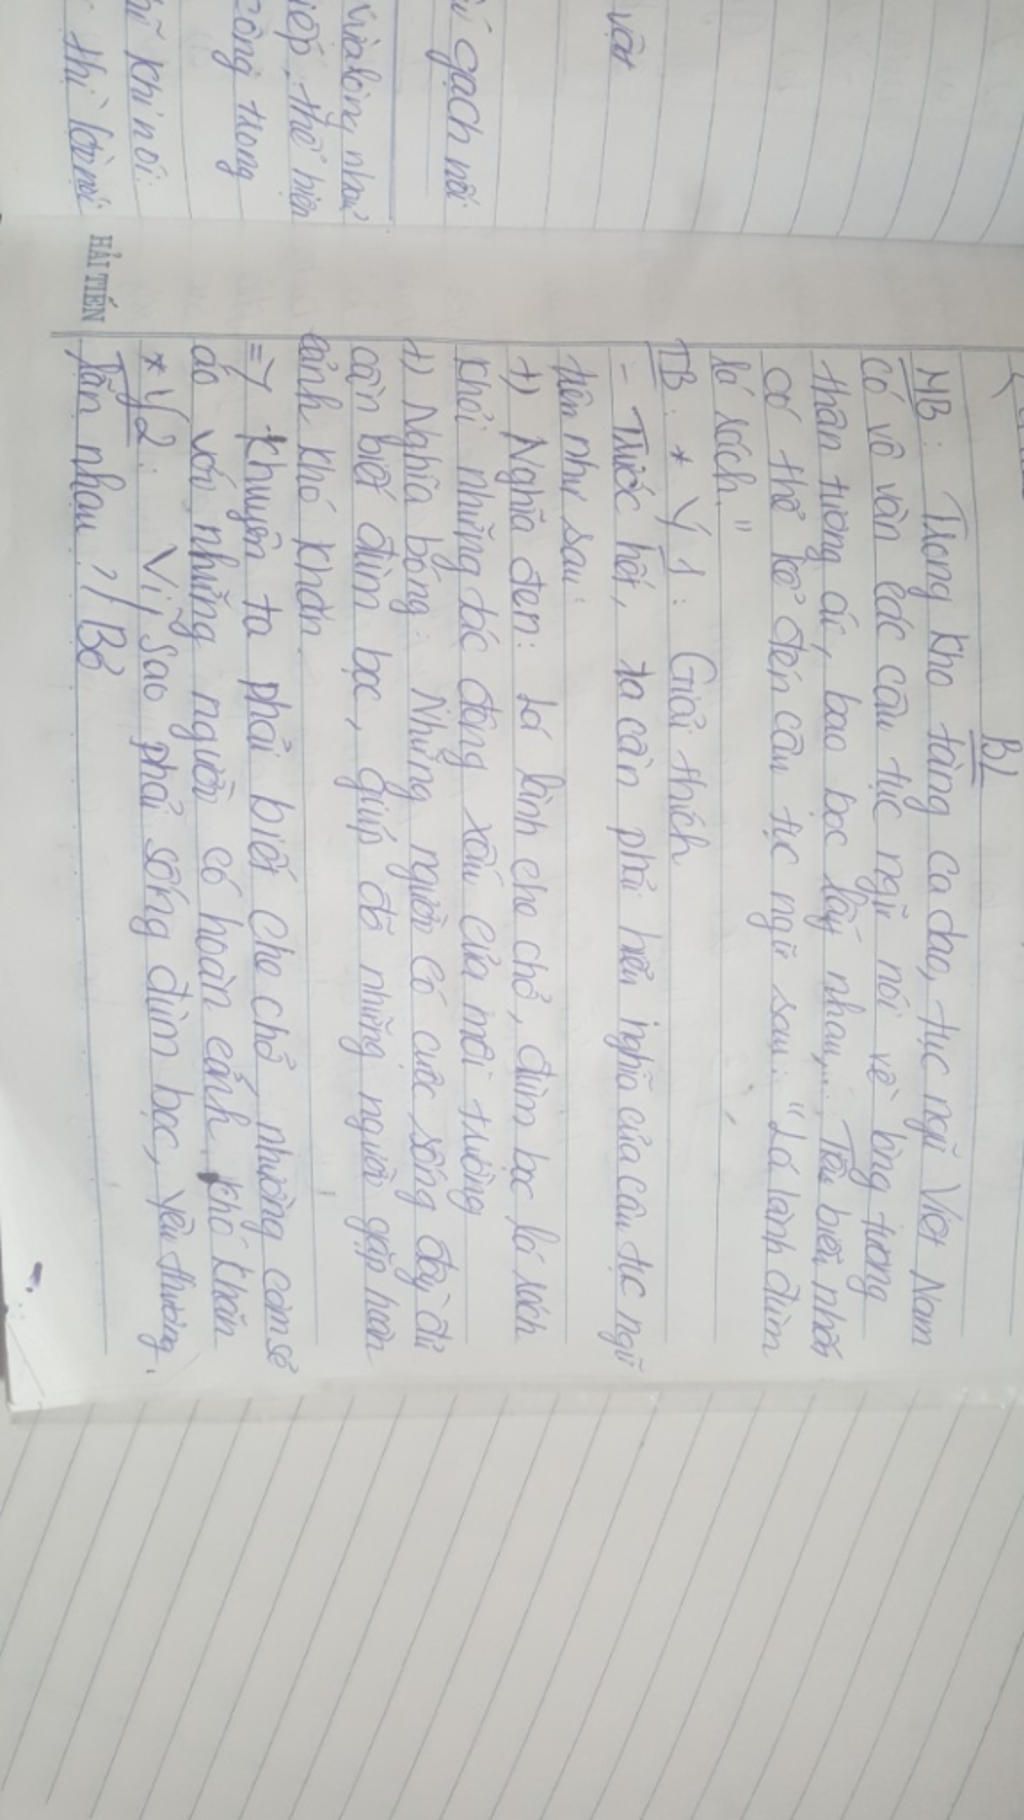 vật
gạch nối
vừa lòng nhau
thể hiện
công trong
khi nói
thì lời nói
HẢI TIẾN
B/
MB: Trong kho tàng ca dao, tục ngữ Việt Nam
có vô vàn các câu tục ngữ nói về lòng tương
thân tương ái, bao bọc lấy nhau,... Tiêu biểu nhất
có thể kể đến câu tục ngữ sau: "Lá lành đùm
lá rách."
TB: * Ý 1: Giải thích
- Trước hết, ta cần phải hiểu nghĩa của câu tục ngữ
trên như sau:
+) Nghĩa đen: Lá lành che chở, đùm bọc lá rách
khỏi những tác động xấu của môi trường
+) Nghĩa bóng: Những người có cuộc sống đầy đủ
cần biết đùm bọc, giúp đỡ những người gặp hoàn
cảnh khó khăn.
=> Khuyên ta phải biết che chở, nhường cơm sẻ
áo với những người có hoàn cảnh khó khăn
* Ý 2: Vì sao phải sống đùm bọc, yêu thương
lẫn nhau?/ Bỏ